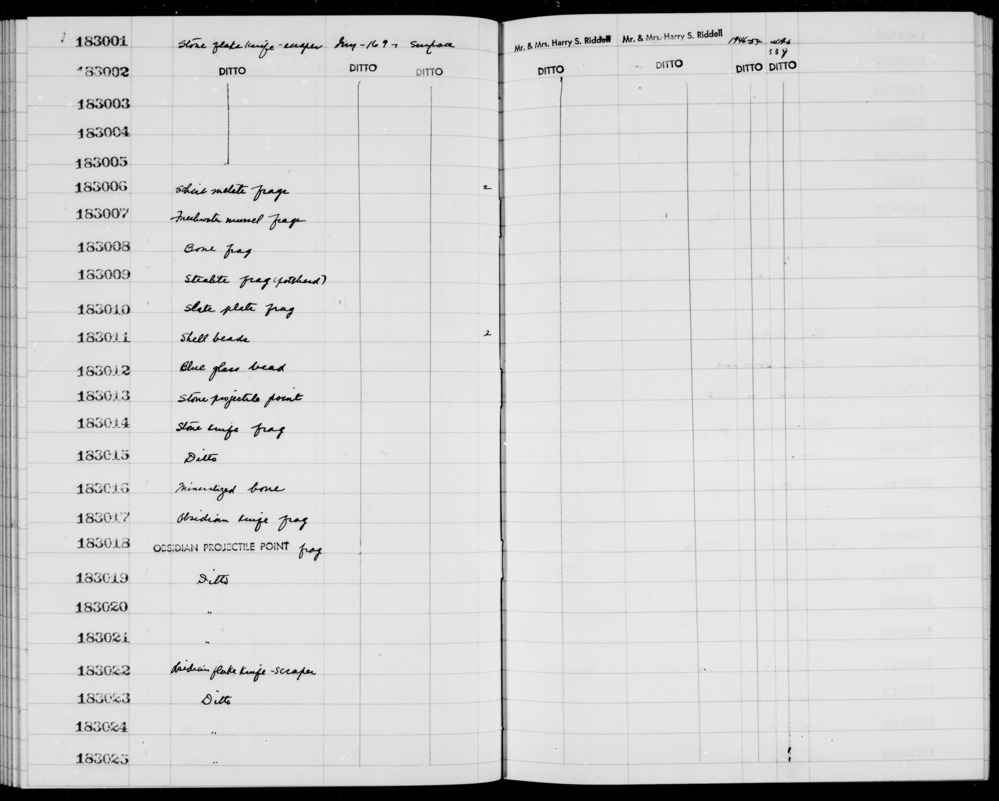 183001 Stone flake knife-scraper Iny-169 Surface Mr. & Mrs. Harry S. Riddell Mr. & Mrs. Harry S. Riddell
183002 DITTO DITTO DITTO DITTO DITTO DITTO DITTO
183003
183004
183005
183006 Schist metate frags 2
183007 Freshwater mussel frags
183008 Bone frag
183009 Steatite frag (potsherd)
183010 Slate plate frag
183011 Shell beads 2
183012 Blue glass bead
183013 Stone projectile point
183014 Stone knife frag
183015 Ditto
183016 Mineralized bone
183017 Obsidian knife frag
183018 OBSIDIAN PROJECTILE POINT frag
183019 Ditto
183020 "
183021 "
183022 Obsidian flake knife-scraper
183023 Ditto
183024 "
183025 "